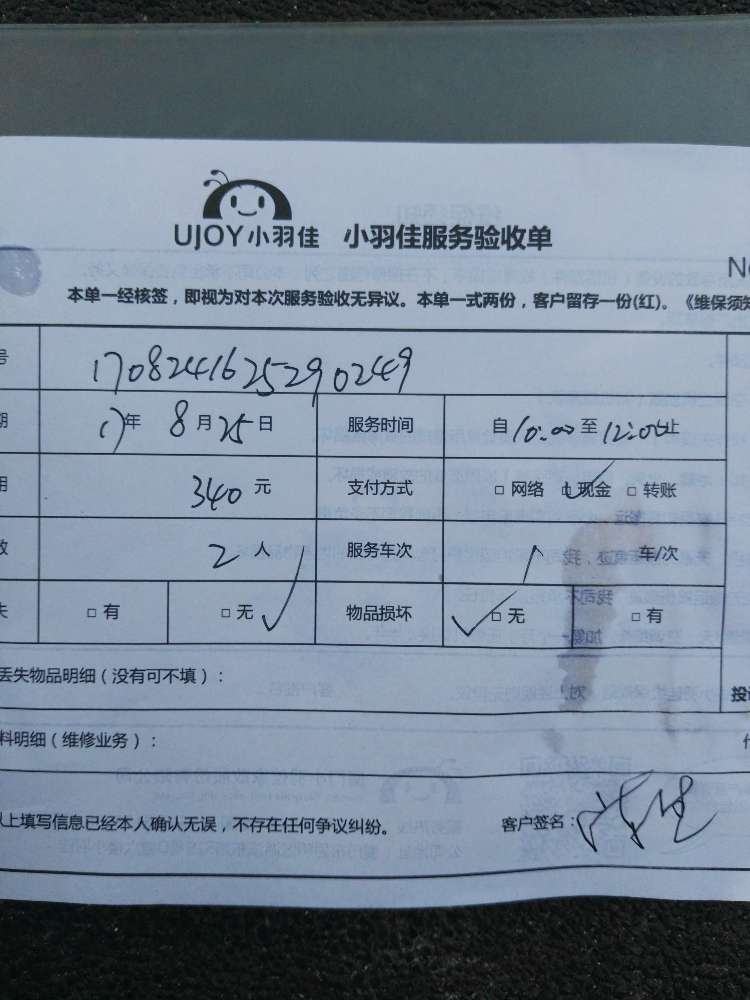 UJOY小羽佳 小羽佳服务验收单
No
本单一经核签，即视为对本次服务验收无异议。本单一式两份，客户留存一份(红)。《维保须知
号 170824162529 0249
期 17年 8月25日 服务时间 自10:00至12:00止
用 340元 支付方式 □ 网络 □ 现金 □ 转账
数 2人 服务车次 1 车/次
失 □ 有 □ 无 物品损坏 □ 无 □ 有
丢失物品明细（没有可不填）： 投诉
料明细（维修业务）：
以上填写信息已经本人确认无误，不存在任何争议纠纷。 客户签名：